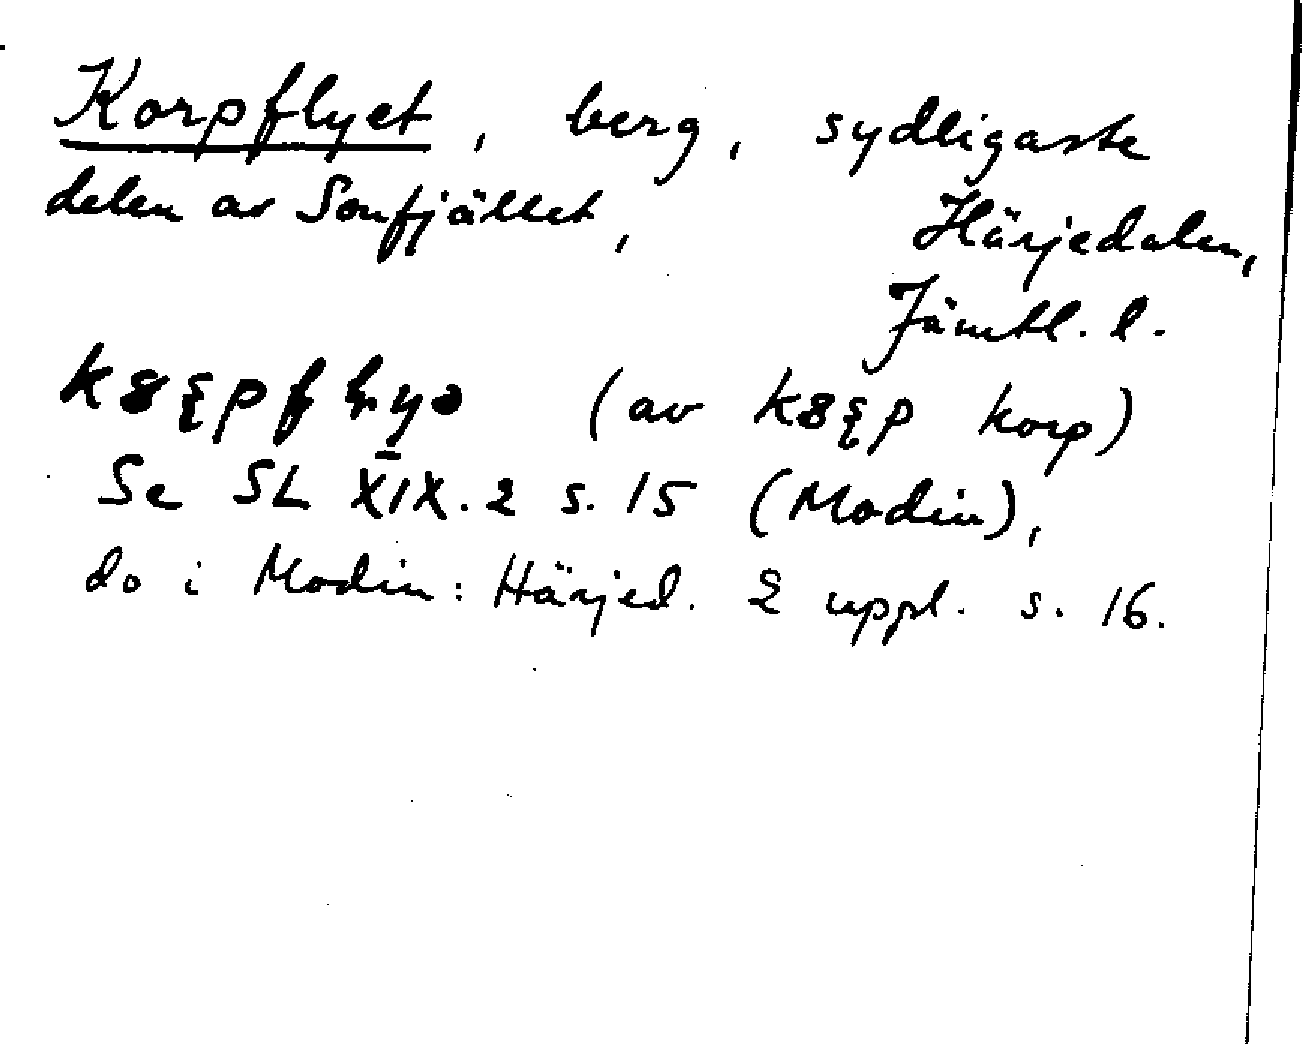 Korpflyet, berg, sydligaste
delen av Sonfjället, Härjedalen,
Jämtl. l.
(av korp)
Se SL XIX.2 s. 15 (Modin),
do i Modin: Härjed. 2 uppl. s. 16.